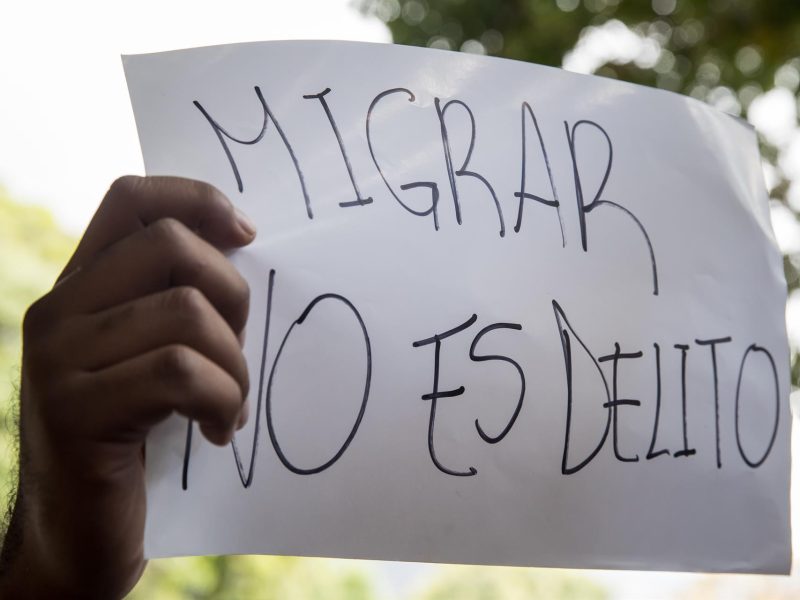 MIGRAR
NO ES DELITO